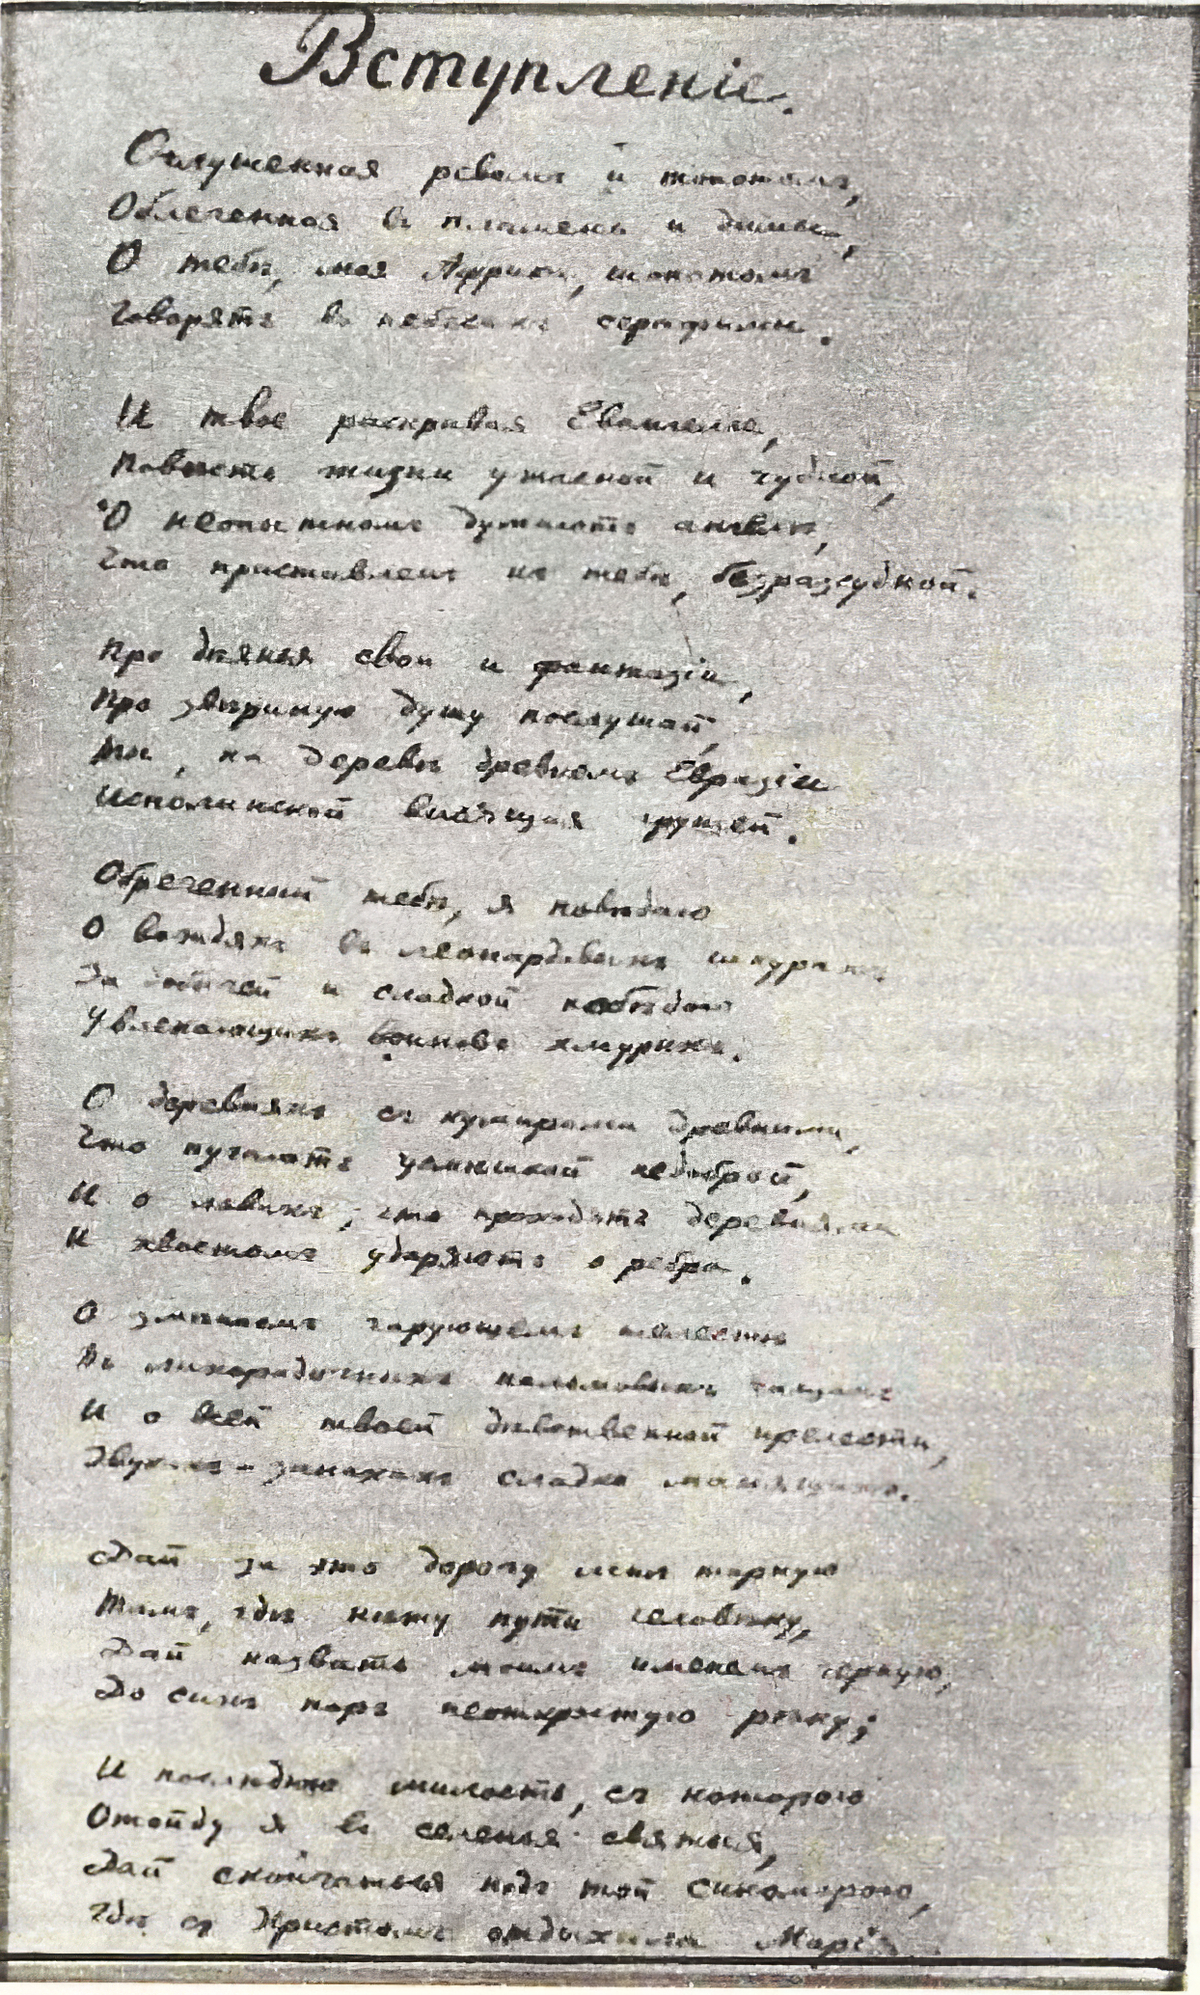 Вступленіе.
Оглушенная ревомъ и топотомъ,
Облеченная въ пламень и дымы,
О тебѣ, моя Африка, шопотомъ
Говорятъ въ небесахъ серафимы.
И твое раскрывая Евангелье,
Повѣсть жизни ужасной и чудной,
О неопытномъ думаютъ ангелѣ,
Что приставленъ къ тебѣ, безразсудной.
Про дѣянья свои и фантазіи,
Про звѣриную душу послушай,
Ты, на деревѣ древнемъ Евразіи
Исполинской висящая грушей.
Обреченный тебѣ, я повѣдаю
О вождяхъ въ леопардовыхъ шкурахъ,
За добычей и сладкой побѣдою
Увлекающихъ воиновъ хмурыхъ.
О деревняхъ съ кумирами древними,
Что пугаютъ усмѣшкой недоброй,
И о львахъ, что проходятъ деревнями
И хвостомъ ударяютъ о ребра.
О змѣиномъ чарующемъ шелестѣ
Въ лихорадочныхъ пальмовыхъ чащахъ
И о всей твоей дѣвственной прелести,
Звукахъ - запахахъ сладко манящихъ.
Дай за это дорогу мнѣ торную
Тамъ, гдѣ нѣту пути человѣку,
Дай назвать моимъ именемъ черную,
До сихъ поръ неоткрытую рѣчку;
И послѣднюю милость, съ которою
Отойду я въ селенья святыя,
Дай скончаться подъ той сикоморою,
Гдѣ съ Христомъ отдыхала Марія.